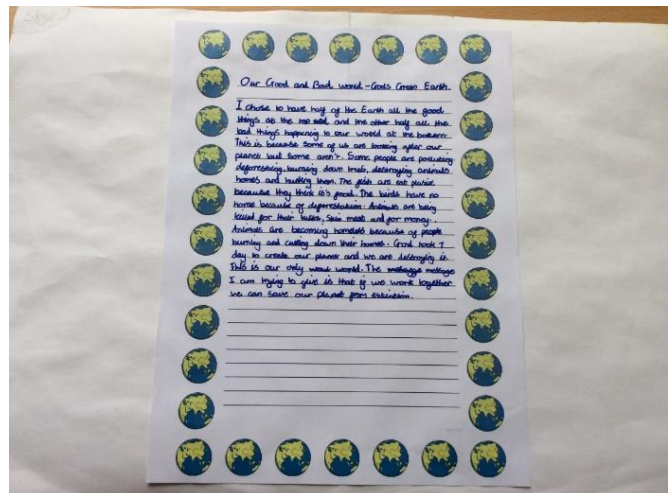 Skye
Our Good and Bad world - Gods Green Earth
I chose to have half of the Earth all the good
things at the top and the other half all the
bad things happening to our world at the bottem
This is because some of us are looking after our
planet but some aren't. Some people are polluting
deforesting, burning down trees, destroying animals
homes and hurting them. The fish are eat plastic
because they think it's food. The birds have no
home because of deforestation. Animals are being
killed for their tusks, skin meat and for money.
Animals are becoming homeless because of people
burning and cutting down their homes. God took 7
day to create our planet and we are destroying it
This is our only world. The message
I am trying to give is that if we work together
we can save our planet from extinction.